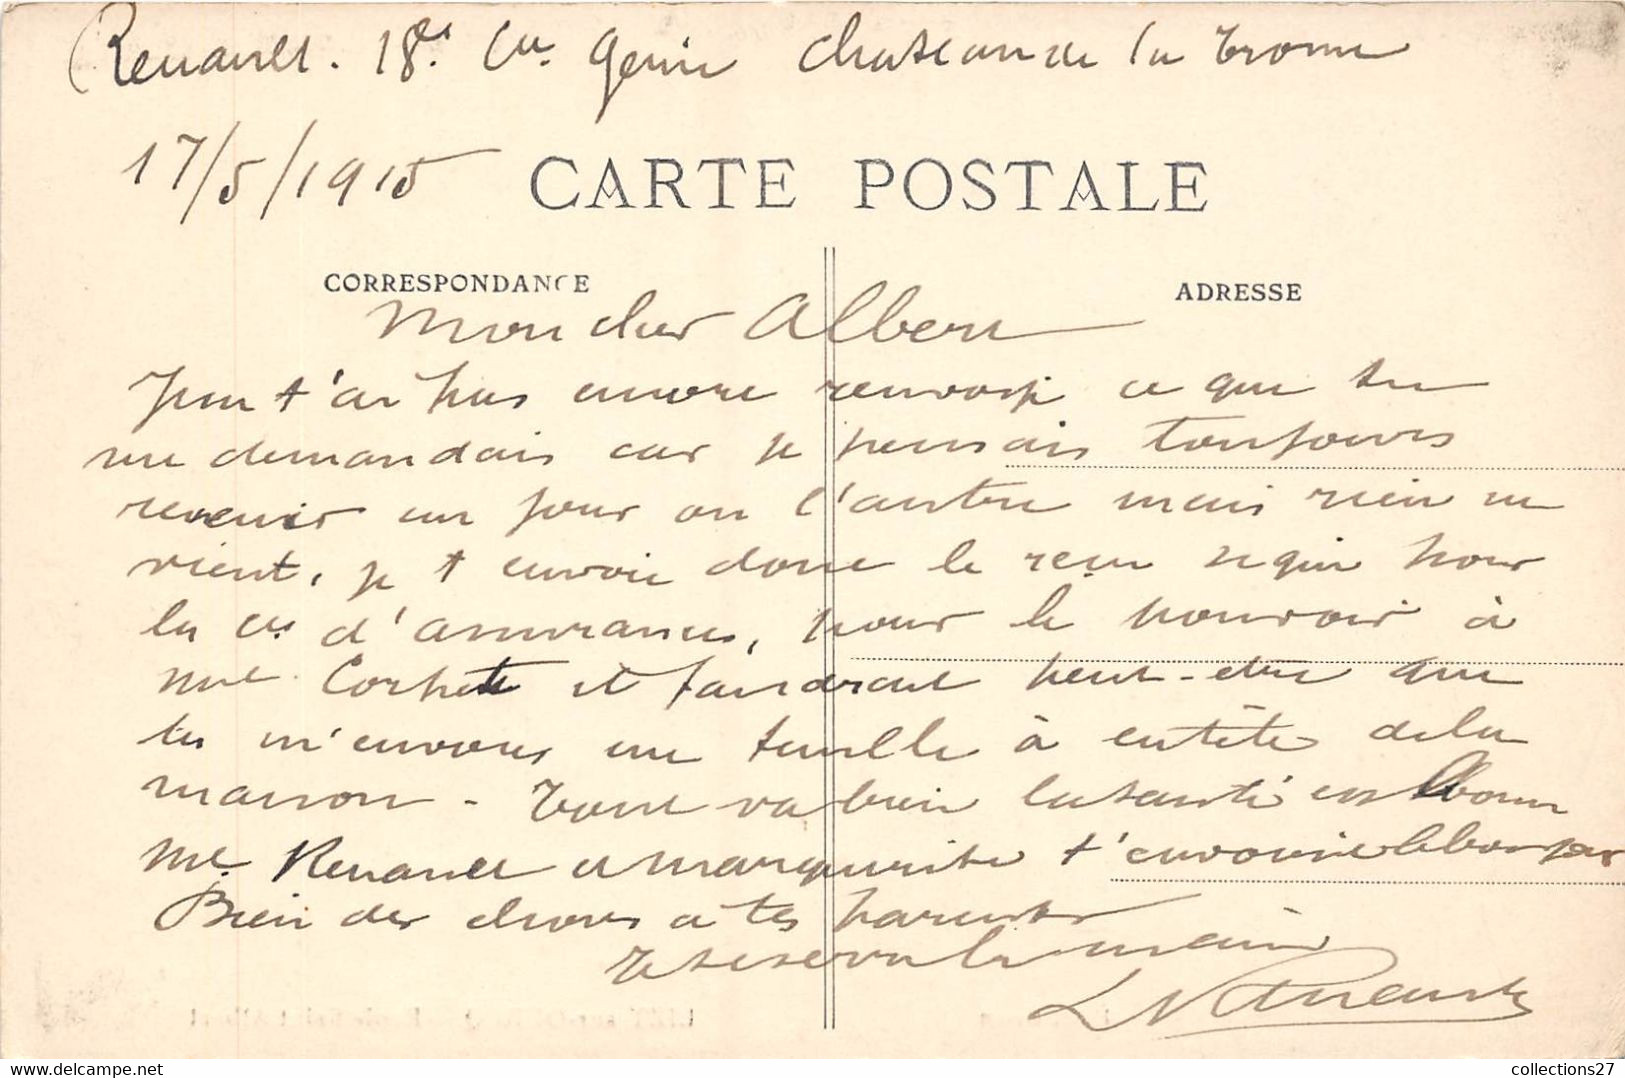 Renault. 18e Cie Génie Chateau de la
17/5/1915
CARTE POSTALE
CORRESPONDANCE
ADRESSE
Mon cher Albert
Je ne t'ai pas encore renvoyé ce que tu
me demandais car je pensais toujours
revenir un jour ou l'autre mais rien ne
vient, je t envoie donc le reçu signé pour
la Cie d'assurances, pour le pouvoir à
Mme il faudrait peut-etre que
tu m'envoies une feuille à entête de la
maison - Tout va bien la santé est bonne
Me Renault et Marguerite t'envoie le bonjour
Bien des choses à tes parents
Je te serre la main
collections27